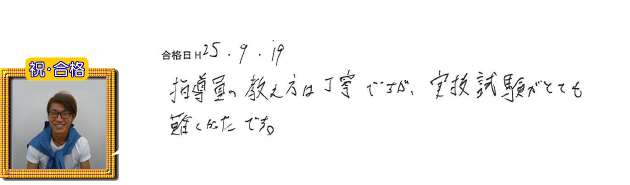 祝・合格
合格日 H25.9.19
指導員の教え方は丁寧ですが、実技試験がとても
難しかたです。